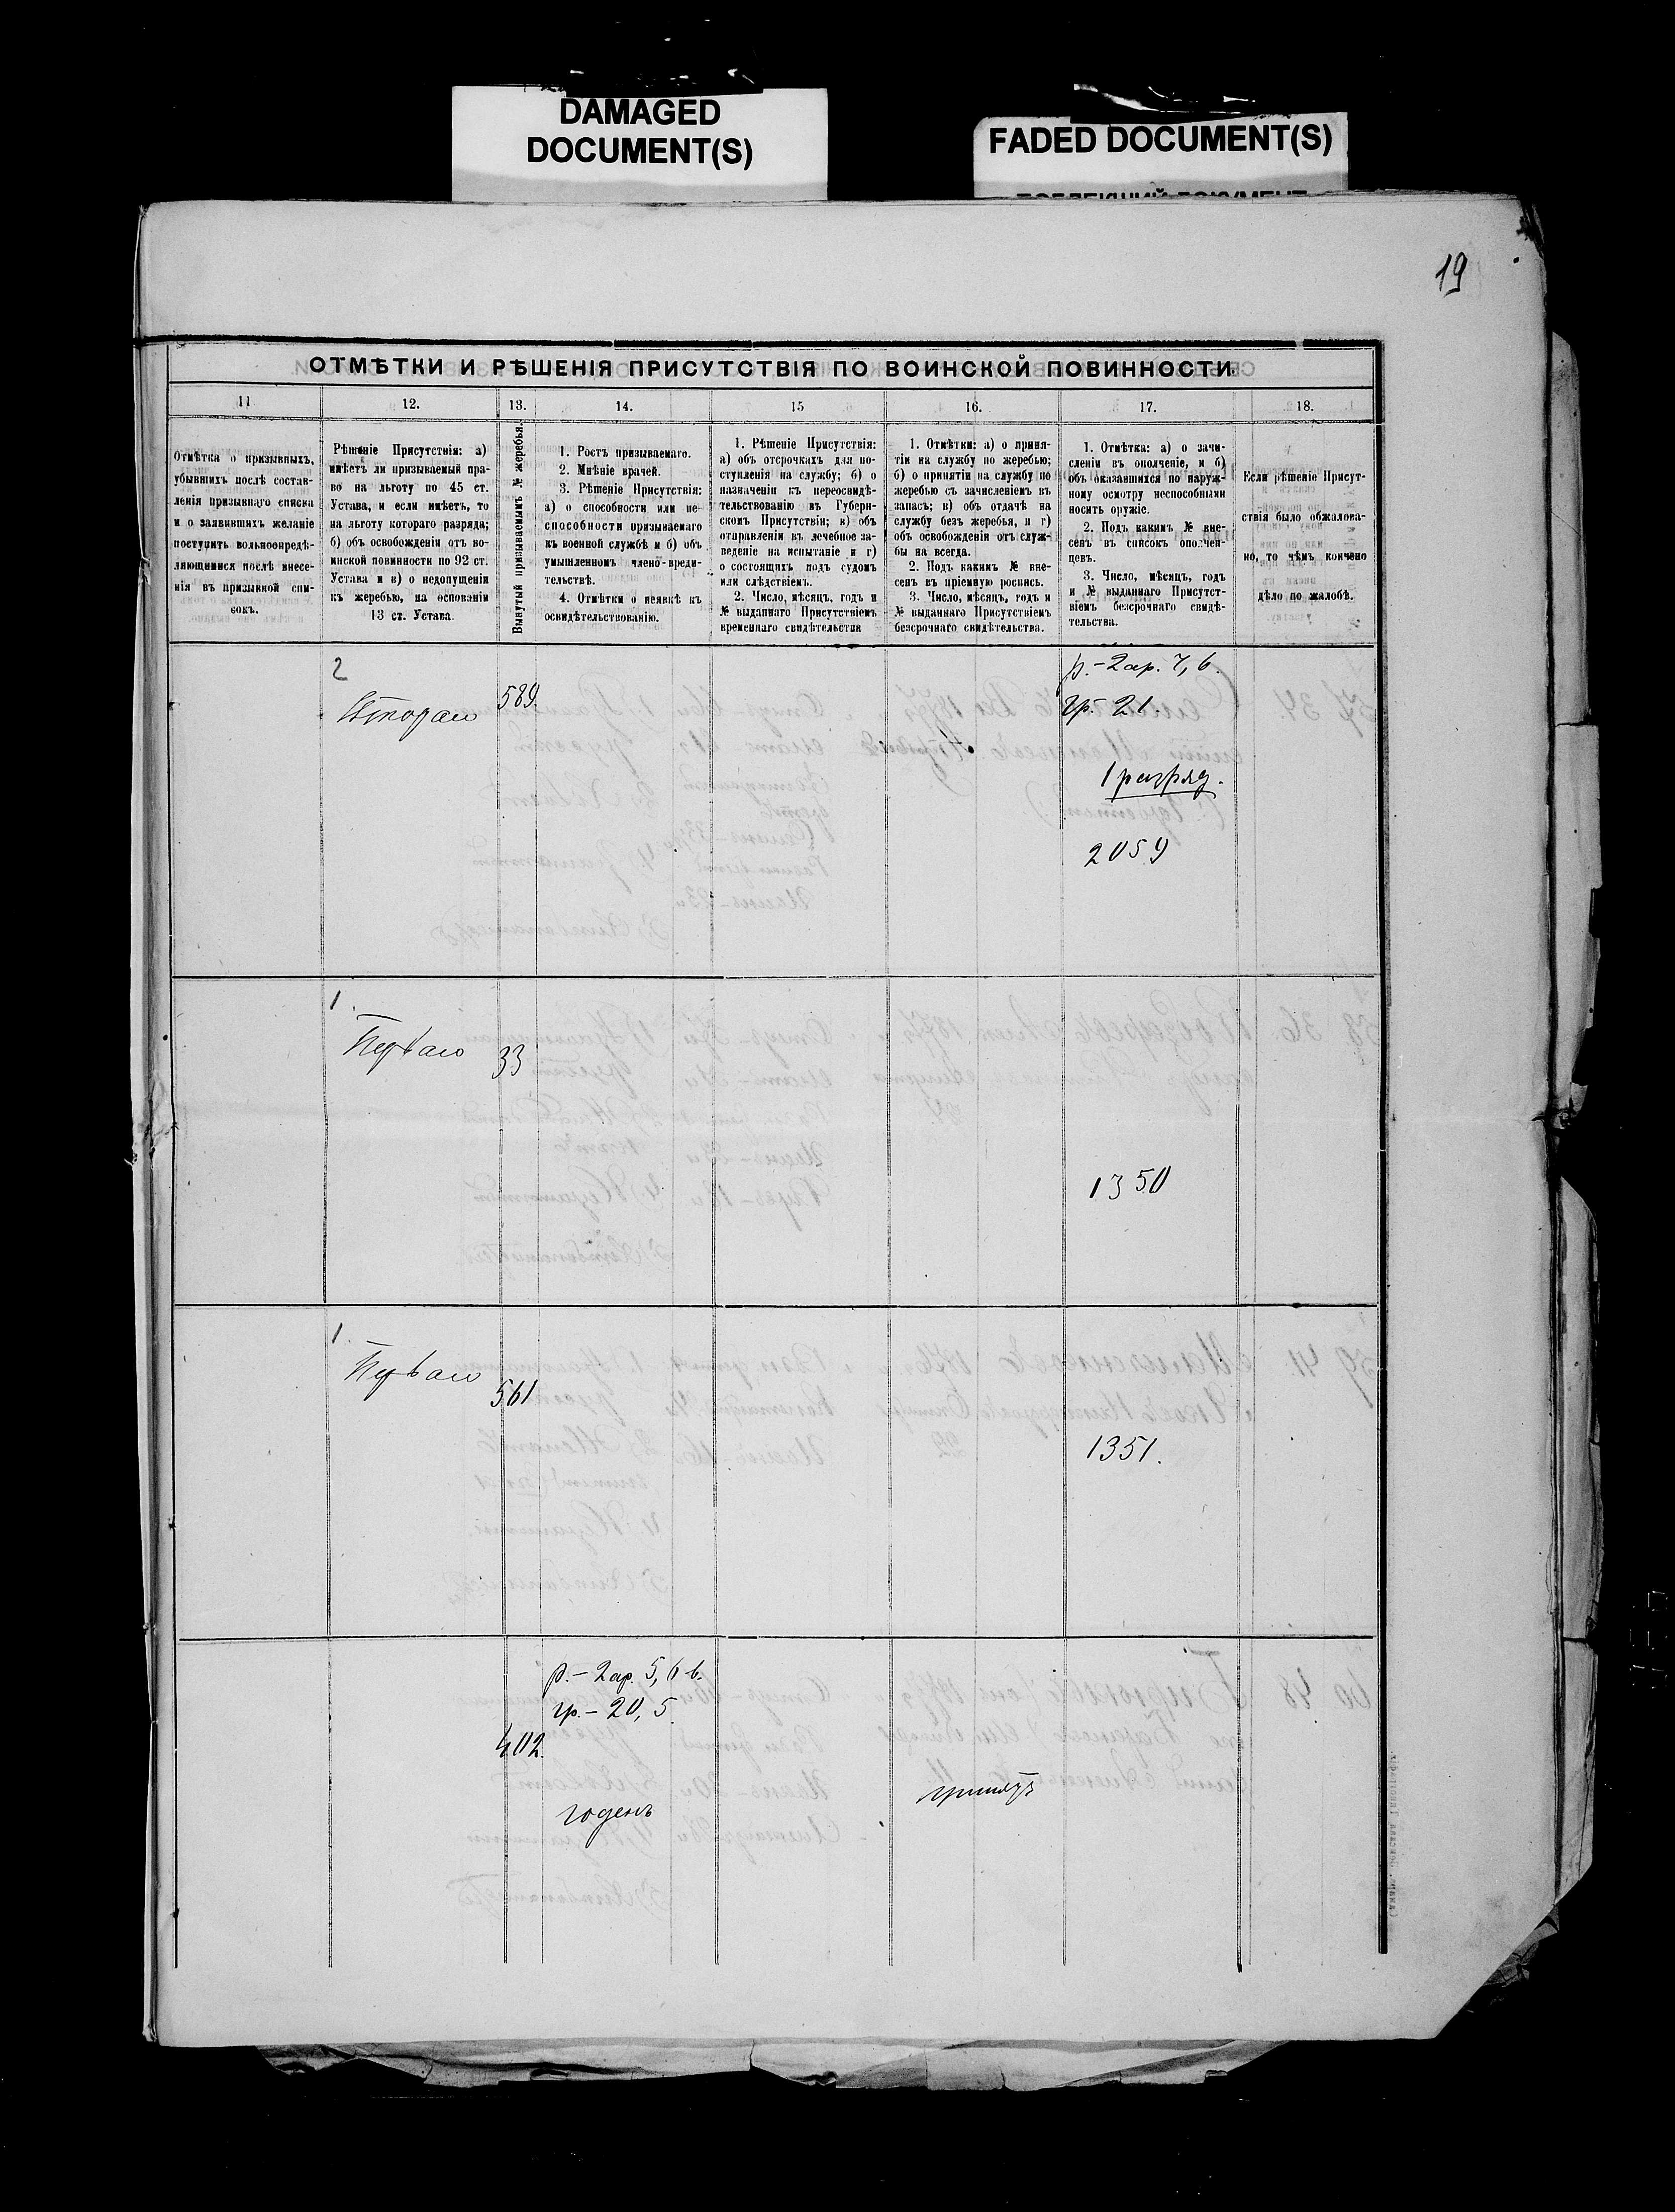 DAMAGED
DOCUMENT(S)
FADED DOCUMENT(S)
19
ОТМѢТКИ И РѢШЕНІЯ ПРИСУТСТВІЯ ПО ВОИНСКОЙ ПОВИННОСТИ.
11
12.
13.
14.
15
16.
17.
18.
Отмѣтка о призывныхъ,
убывшихъ послѣ состав-
ленія призывнаго списка
и о заявившихъ желаніе
поступить вольноопредѣ-
ляющимися послѣ внесе-
нія въ призывной спи-
сокъ.
Рѣшеніе Присутствія: а)
имѣетъ ли призываемый пра-
во на льготу по 45 ст.
Устава, и если имѣетъ, то
на льготу котораго разряда;
б) объ освобожденіи отъ во-
инской повинности по 92 ст.
Устава и в) о недопущеніи
къ жеребью, на основаніи
13 ст. Устава.
Вынутый призываемымъ № жеребья.
1. Ростъ призываемаго.
2. Мнѣніе врачей.
3. Рѣшеніе Присутствія:
а) о способности или не-
способности призываемаго
къ военной службѣ и б) объ
умышленномъ члено-вреди-
тельствѣ.
4. Отмѣтки о неявкѣ къ
освидѣтельствованію.
1. Рѣшеніе Присутствія:
а) объ отсрочкахъ для по-
ступленія на службу; б) о
назначеніи къ переосвидѣ-
тельствованію въ Губерн-
скомъ Присутствіи; в) объ
отправленіи въ лечебное за-
веденіе на испытаніе и г)
о состоящихъ подъ судомъ
или слѣдствіемъ.
2. Число, мѣсяцъ, годъ и
№ выданнаго Присутствіемъ
временнаго свидѣтельства
1. Отмѣтки: а) о приня-
тіи на службу по жеребью;
б) о принятіи на службу по
жеребью съ зачисленіемъ въ
запасъ; в) объ отдачѣ на
службу безъ жеребья, и г)
объ освобожденіи отъ служ-
бы на всегда.
2. Подъ какимъ № вне-
сенъ въ пріемную роспись.
3. Число, мѣсяцъ, годъ и
№ выданнаго Присутствіемъ
безсрочнаго свидѣтельства.
1. Отмѣтка: а) о зачи-
сленіи въ ополченіе, и б)
объ оказавшихся по наруж-
ному осмотру неспособными
носить оружіе.
2. Подъ какимъ № вне-
сенъ въ списокъ ополчен-
цевъ.
3. Число, мѣсяцъ, годъ
и № выданнаго Присутст-
віемъ безсрочнаго свидѣ-
тельства.
Если рѣшеніе Присут-
ствія было обжалова-
но, то чѣмъ кончено
дѣло по жалобѣ.
2
Втораго
589.
р.-2 ар. 7, в.
гр. 21.
1 разряд.
2059
1.
Перваго
33
1350
1.
Перваго
561
1351.
р.-2 ар. 5, 6 в.
гр.-20, 5.
402.
годенъ
принятъ